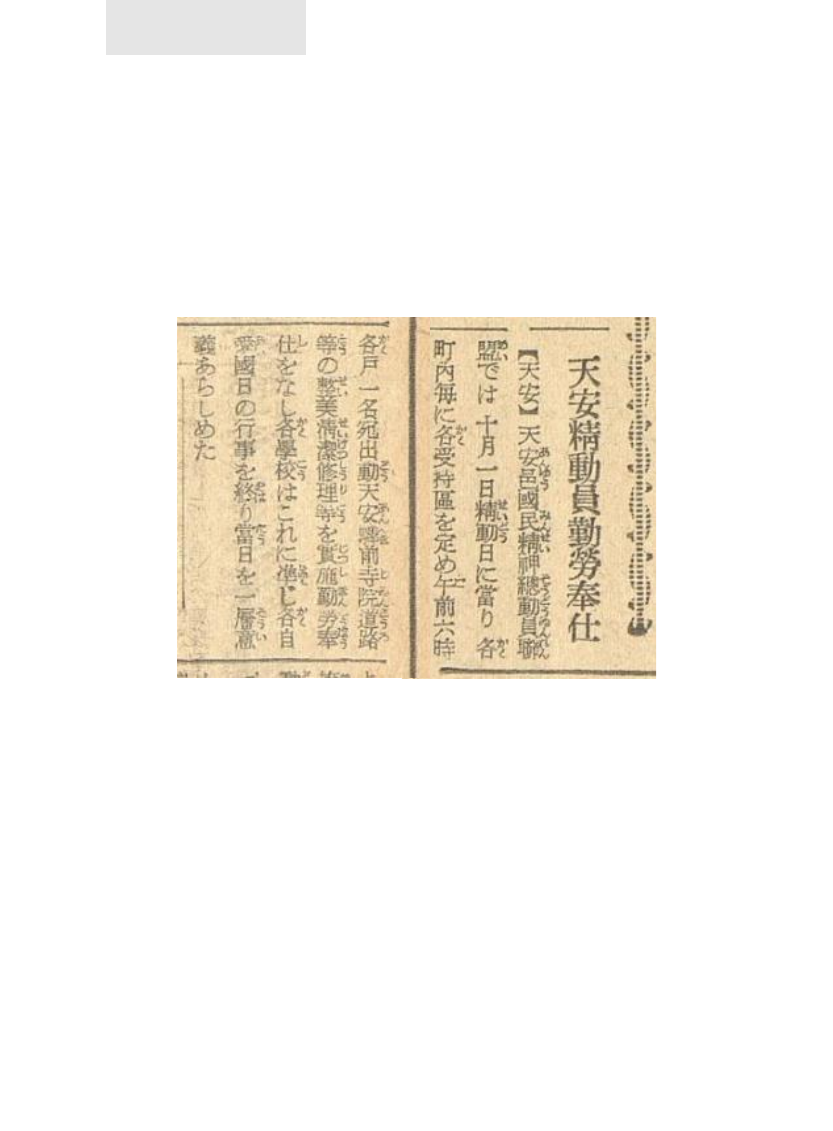 天安精動員勤勞奉仕
【天安】天安邑國民精神總動員聯
盟では十月一日精動日に當り各
町内每に各受持區を定め午前六時
各戶一名宛出動天安 前寺院道路
等の整美淸潔修理等を實施勤勞奉
仕をなし各學校はこれに準じ各自
愛國日の行事を終り當日を一層意
義あらしめた